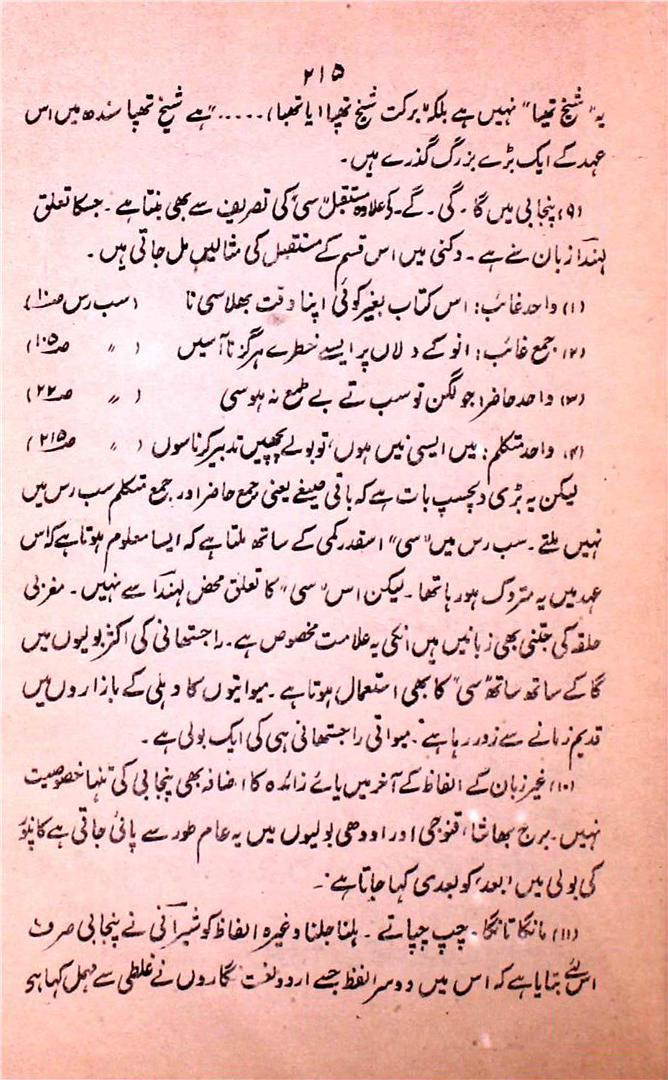 ۲۱۵
یہ "شیخ تھیا" نہیں ہے بلکہ "برکت شیخ تھپا (یا تھبا) ..... " ہے شیخ تھپا سندھ میں اس
عہد کے ایک بڑے بزرگ گذرے ہیں۔
(۹) پنجابی میں گا۔ گی۔ گے۔ کے علاوہ مستقبل "سی" کی تصریف سے بھی بنتا ہے۔ جسکا تعلق
لہندا زبان سے ہے۔ دکنی میں اس قسم کے مستقبل کی مثالیں مل جاتی ہیں۔
(۱) واحد غائب: اس کتاب بغیر کوئی اپنا وقت بھلا سی نا (سب رس صـ۱۰)
(۲) جمع غائب: انو کے دلاں پر ایسے خطرے ہرگز نا آسیں ( " صـ۱۰۵)
(۳) واحد حاضر: جو لگن تو سب تے بے طمع نہ ہوسی ( " صـ۲۲)
(۴) واحد متکلم: میں ایسی نیں ہوں، تو بولے پچھیں تدبیر کرنا سوں ( " صـ۲۱۵)
لیکن یہ بڑی دلچسپ بات ہے کہ باقی صیغے یعنی جمع حاضر اور جمع متکلم سب رس میں
نہیں ملتے۔ سب رس میں "سی" اسقدر کمی کے ساتھ ملتا ہے کہ ایسا معلوم ہوتا ہے کہ اس
عہد میں یہ متروک ہو رہا تھا۔ لیکن اس "سی" کا تعلق محض لہندا سے نہیں۔ مغربی
حلقہ کی جتنی بھی زبانیں ہیں انکی یہ علامت مخصوص ہے۔ راجستھانی کی اکثر بولیوں میں
گا کے ساتھ ساتھ "سی" کا بھی استعمال ہوتا ہے۔ میواتیوں کا دہلی کے بازاروں میں
قدیم زمانے سے زور رہا ہے۔ میواتی راجستھانی ہی کی ایک بولی ہے۔
(۱۰) غیر زبان کے الفاظ کے آخر میں یائے زائدہ کا اضافہ بھی پنجابی کی تنہا خصوصیت
نہیں۔ برج بھاشا، قنوجی اور اودھی بولیوں میں یہ عام طور سے پائی جاتی ہے کانپور
کی بولی میں 'بعد' کو بعدی کہا جاتا ہے۔
(۱۱) مانگا تانگا۔ چپ چپاتے۔ ہلنا جلنا وغیرہ الفاظ کو شیرانی نے پنجابی صرف
اس لئے بتایا ہے کہ اس میں دوسرا لفظ جسے اردو لغت نگاروں نے غلطی سے مہمل کہا ہے